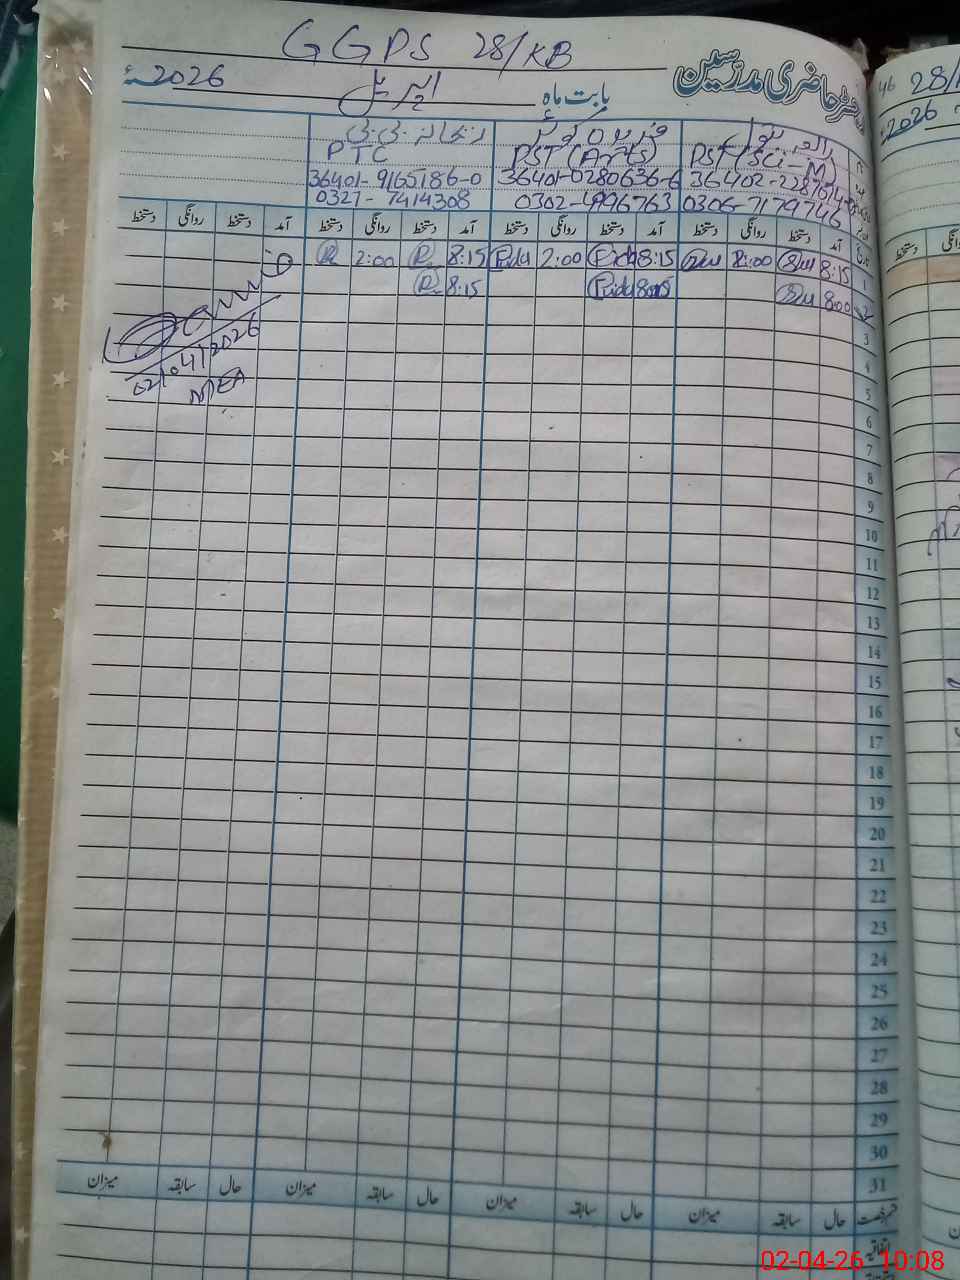 GGPS 28/KB
رجسٹر حاضری مدرسین
بابت ماہ اپریل 2026ء
PTC
PST (Arts)
PST (Sci-M)
36401-9165186-0
36401-0280636-6
0327-7414308
0302-4996763
0306-7179746
آمد دستخط روانگی دستخط آمد دستخط روانگی دستخط آمد دستخط روانگی دستخط آمد دستخط روانگی دستخط
1 8:15 8:15 2:00 8:15 2:00
2 8:00 8:15
3
4
5
6
7
8
9
10
11
12
13
14
15
16
17
18
19
20
21
22
23
24
25
26
27
28
29
30
31
02/04/2026
MEA
حال سابقہ میزان حال سابقہ میزان حال سابقہ میزان حال سابقہ میزان
اتفاقیہ
46 28/
2026
02-04-26 10:08